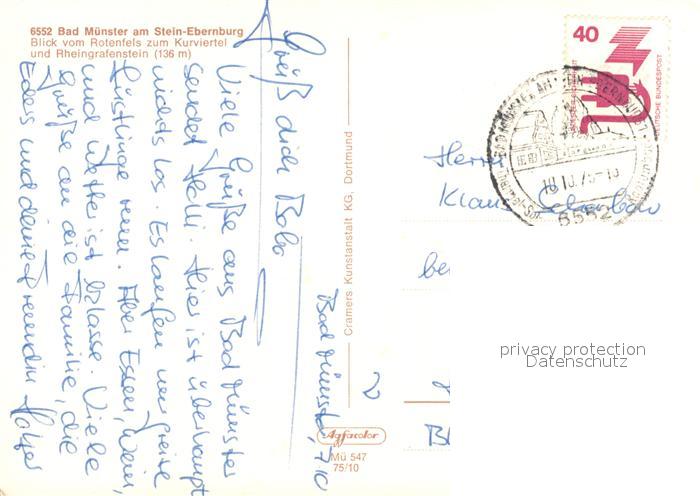 6552 Bad Münster am Stein-Ebernburg
Blick vom Rotenfels zum Kurviertel
und Rheingrafenstein (136 m)
Bad Münster, 7.10
Grüß dich Bobo
Viele Grüße aus Bad Münster
sendet Holli. Hier ist überhaupt
nichts los. Es laufen nur greise
Lüstlinge rum. Aber Essen, Wein,
und Wetter ist Klasse. Viele
Grüße an die Familie, die
Edels und deine Freundin Holger
Cramers Kunstanstalt KG, Dortmund
Agfacolor
Mü 547
75/10
40
DEUTSCHE BUNDESPOST
BAD MÜNSTER AM STEIN-EBERNBURG
6552
Herrn
Klaus
be
privacy protection
Datenschutz